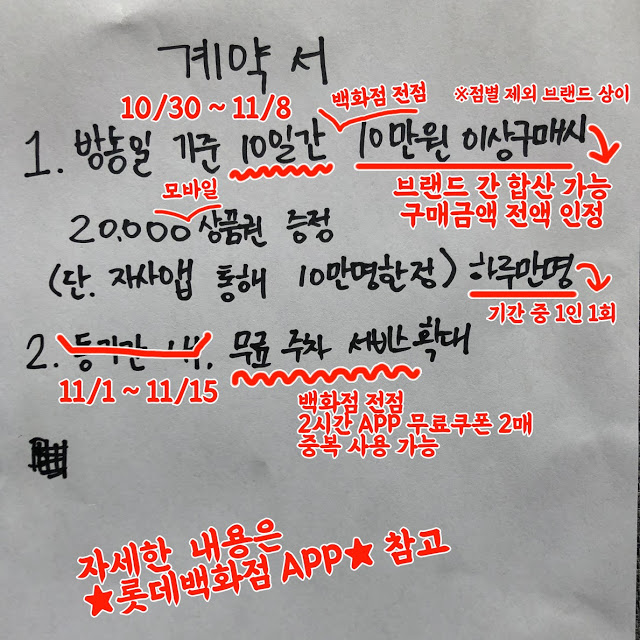 계약서
10/30 ~ 11/8 백화점 전점 ※점별 제외 브랜드 상이
1. 방송일 기준 10일간 10만원 이상구매시
브랜드 간 합산 가능
구매금액 전액 인정
모바일
20.000 상품권 증정
(단. 자사앱 통해 10만명한정) 하루만명
기간 중 1인 1회
2. 동기간 내. 무료 주차 서비스 확대
11/1 ~ 11/15
백화점 전점
2시간 APP 무료쿠폰 2매
중복 사용 가능
자세한 내용은
★롯데백화점 APP★ 참고